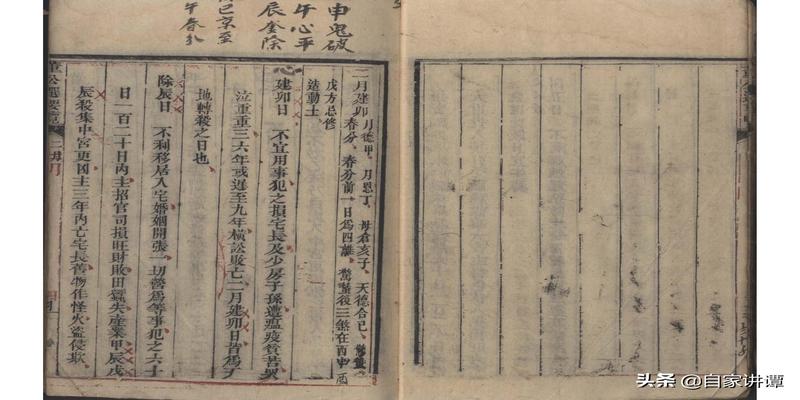 申鬼破
午心平
辰奎除
二月建卯 月德甲 月恩丁 母倉亥子 天德合巳 驚蟄
春分 春分前一日爲四離 驚蟄後三煞在酉申酉
戊方忌修
造動土
建卯日 不宜用事犯之損宅長及少房子孫遭瘟疫貧苦哭
泣重重三六年或遲至九年橫訟敗亡二月建卯日皆爲天
地轉殺之日也
除辰日 不利移居入宅婚姻開張一切營爲等事犯之六十
日一百二十日內主招官司損旺財敗田蠶失産業甲辰戊
辰殺集中宮更凶主三年內亡宅長舊物作怪火盜侵欺
董公選要覽 二卯月
头条 @自家讲谭